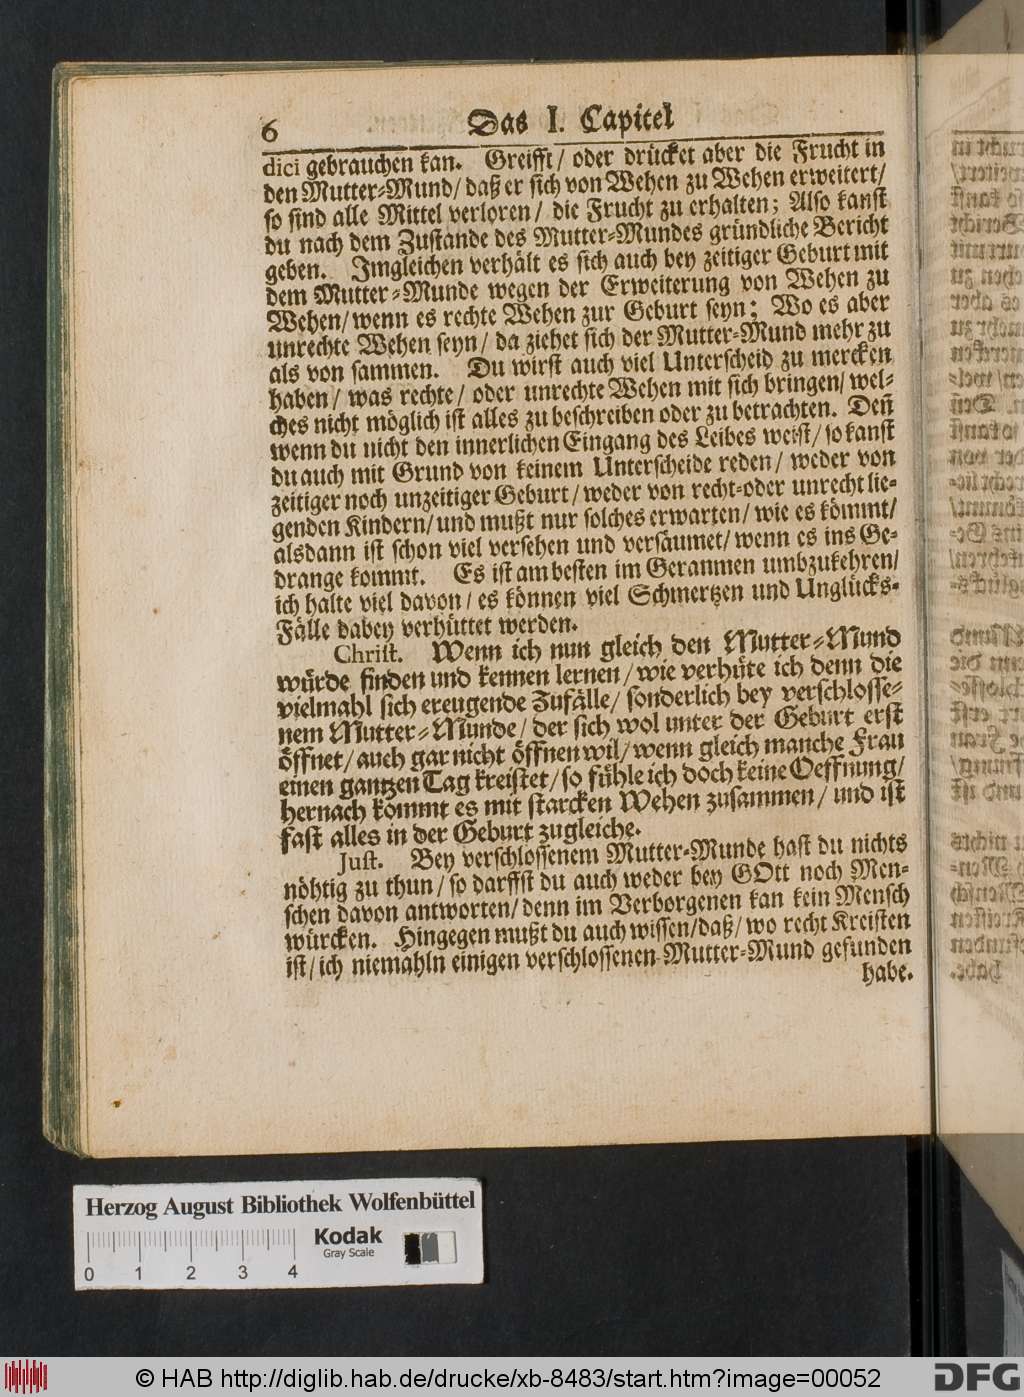 6 Das I. Capitel
dici gebrauchen kan. Greifft/ oder drücket aber die Frucht in
den Mutter-Mund/ daß er sich von Wehen zu Wehen erweitert/
so sind alle Mittel verloren/ die Frucht zu erhalten; Also kanst
du nach dem Zustande des Mutter-Mundes gründliche Bericht
geben. Imgleichen verhält es sich auch bey zeitiger Geburt mit
dem Mutter-Munde wegen der Erweiterung von Wehen zu
Wehen/ wenn es rechte Wehen zur Geburt seyn; Wo es aber
unrechte Wehen seyn/ da ziehet sich der Mutter-Mund mehr zu
als von sammen. Du wirst auch viel Unterscheid zu mercken
haben/ was rechte/ oder unrechte Wehen mit sich bringen/ wel-
ches nicht möglich ist alles zu beschreiben oder zu betrachten. Deñ
wenn du nicht den innerlichen Eingang des Leibes weist/ so kanst
du auch mit Grund von keinem Unterscheide reden/ weder von
zeitiger noch unzeitiger Geburt/ weder von recht-oder unrecht lie-
genden Kindern/ und mußt nur solches erwarten/ wie es kömmt/
alsdann ist schon viel versehen und versäumet/ wenn es ins Ge-
drange kommt. Es ist am besten im Geranmen umbzukehren/
ich halte viel davon/ es können viel Schmertzen und Unglücks-
Fälle dabey verhüttet werden.
Christ. Wenn ich nun gleich den Mutter-Mund
würde finden und kennen lernen/ wie verhüte ich denn die
vielmahl sich ereugende Zufälle/ sonderlich bey verschlosse-
nem Mutter-Munde/ der sich wol unter der Geburt erst
öffnet/ auch gar nicht öffnen wil/ wenn gleich manche Frau
einen gantzen Tag kreistet/ so fühle ich doch keine Oeffnung/
hernach kommt es mit starcken Wehen zusammen/ und ist
fast alles in der Geburt zugleiche.
Just. Bey verschlossenem Mutter-Munde hast du nichts
nöhtig zu thun/ so darffst du auch weder bey GOtt noch Men-
schen davon antworten/ denn im Verborgenen kan kein Mensch
würcken. Hingegen mußt du auch wissen/ daß/ wo recht Kreisten
ist/ ich niemahln einigen verschlossenen Mutter-Mund gefunden
habe.
Herzog August Bibliothek Wolfenbüttel
Kodak
Gray Scale
0 1 2 3 4
© HAB http://diglib.hab.de/drucke/xb-8483/start.htm?image=00052
DFG